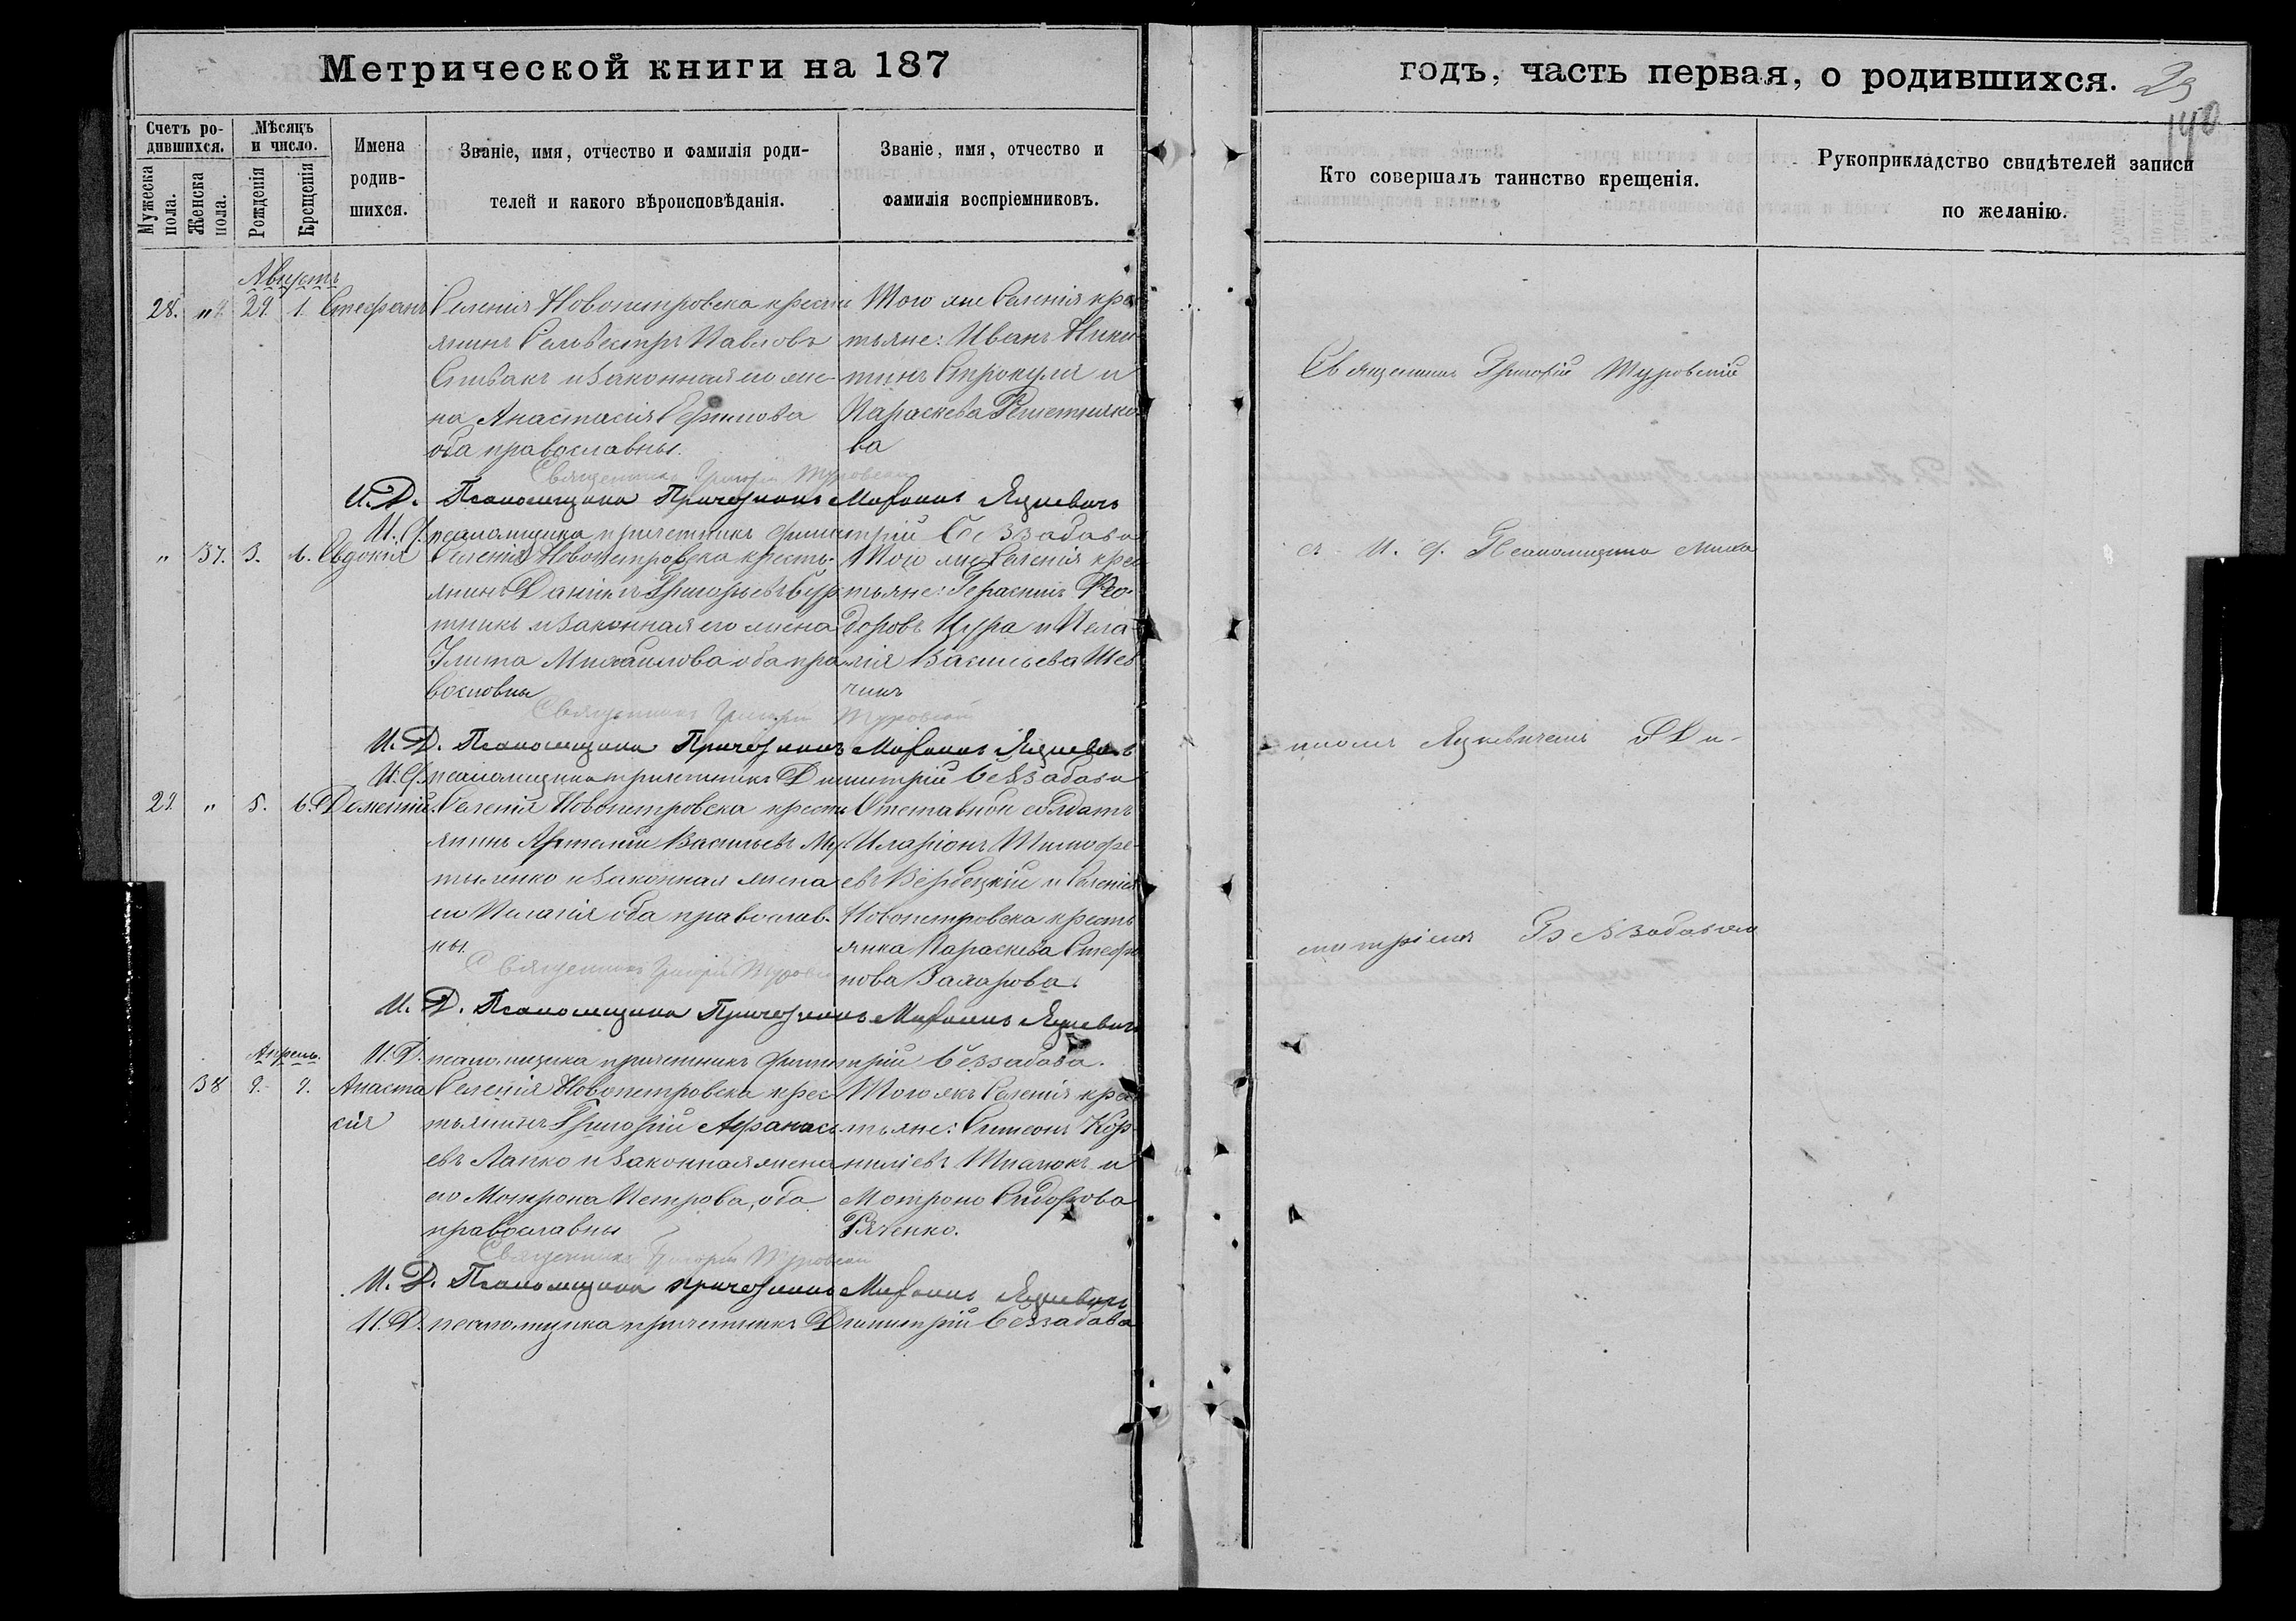 Метрической книги на 187
годъ, часть первая, о родившихся.
23
140
Счетъ родившихся.
Мужеска пола.
Женска пола.
Мѣсяцъ и число.
Рожденія
Крещенія
Имена родив-
шихся.
Званіе, имя, отчество и фамилія роди-
телей и какого вѣроисповѣданія.
Званіе, имя, отчество и
фамилія воспріемниковъ.
Кто совершалъ таинство крещенія.
Рукоприкладство свидѣтелей записи
по желанію.
Августъ
28. 29. 1. Стефанъ
Селенія Новопетровска кресть
янинъ Сельвестръ Павловъ
Спивакъ и законная его же-
на Анастасія
оба православны.
Того же Селенія крес
тьяне: Иванъ Ники-
тинъ и
Параскева Решетняко
ва
Священникъ Григорій Туровскій
И. Д. Псаломщика Причетникъ Михаилъ Яцкевичъ
псаломщика причетникъ Димитрій Беззабава
" 37. 3. 6. Евдокія
Селенія Новопетровска кресть-
янинъ Даніилъ Григорьевъ
и законная его жена
Улита Михайлова оба пра
вославны
Того же Селенія крес
тьяне: Герасимъ Фео-
доровъ Цура и Пела-
гія Васильева Шев
Священникъ Григорій Туровскій
И. Д. Псаломщика Причетникъ Михаилъ Яцкевичъ
псаломщика причетникъ Димитрій Беззабава
29. " 5. 6. Дометій
Селенія Новопетровска кресть
янинъ Артемій Васильевъ
и законная жена
его Пелагія оба православ-
ны
Отставной солдатъ
Иларіонъ Тимофе-
евъ Вербецкій и Селенія
Новопетровска кресть
янка Параскева Стефа
нова Захарова.
Священникъ Григорій Туровскій
И. Д. Псаломщика Причетникъ Михаилъ Яцкевичъ
И. Д. псаломщика причетникъ Димитрій Беззабава.
Апрель.
38 9. 9. Анаста
сія
Селенія Новопетровска крес
тьянинъ Григорій Афанась-
евъ Лапко и законная жена
его Мотрона Петрова, оба
православны
Того же Селенія крес
тьяне: Симеонъ Кор-
ниліевъ Ткачюкъ и
Мотрона Сидорова
Священникъ Григорій Туровскій
И. Д. Псаломщика причетникъ Михаилъ Яцкевичъ
И. Д. псаломщика причетникъ Димитрій Беззабава
Священникъ Григорій Туровскій
съ И. д. Псаломщика Миха
иломъ Яцкевичемъ и Ди-
митріемъ Беззабавою